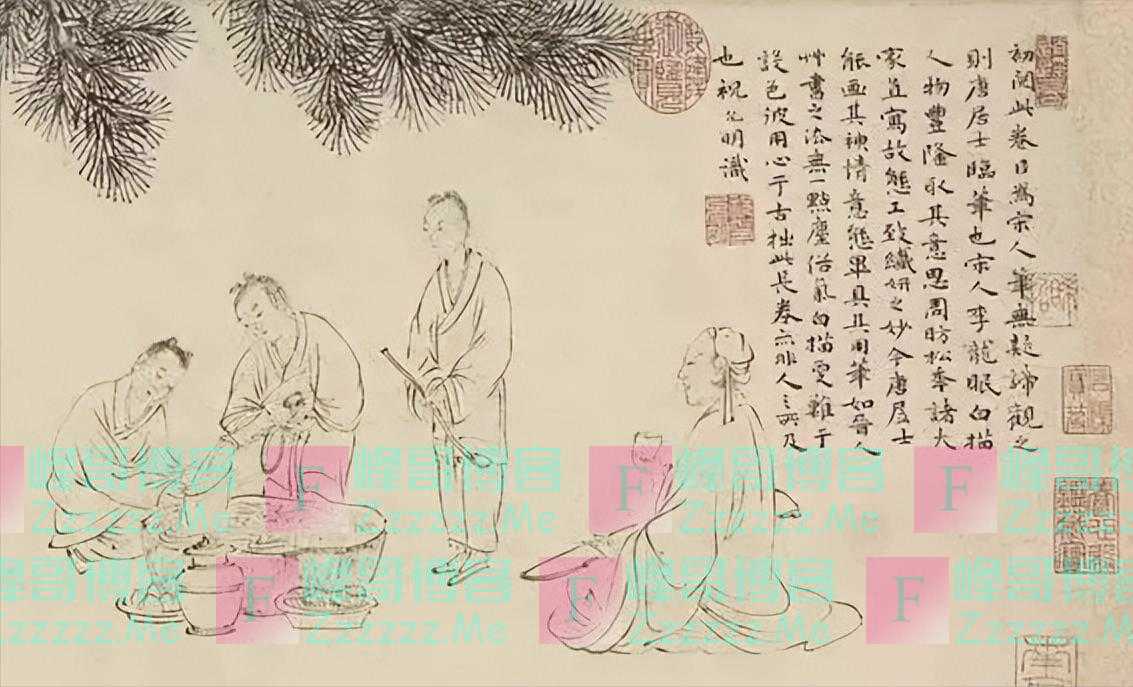 初閱此卷㠯為宋人筆無疑締觀之
則唐居士臨筆也宋人李龍眠白描
人物豐隆取其意思周昉松年諸大
家並寫故態工致纖妍之妙今唐居士
能畫其神情意態畢具其用筆如晉人
艸書之法無一點塵俗氣白描更難于
設色彼用心于古拙此長卷亦非人之所及
也祝允明識
峰哥博客 F 峰哥博客 F 峰哥博客 F 峰哥博客
Zzzzzz.Me Zzzzzz.Me Zzzzzz.Me Zzzzzz
峰哥博客 F 峰哥博客 F 峰哥博客 F 峰哥博
Zzzzzz.Me Zzzzzz.Me Zzzzzz.Me Zzzzzz